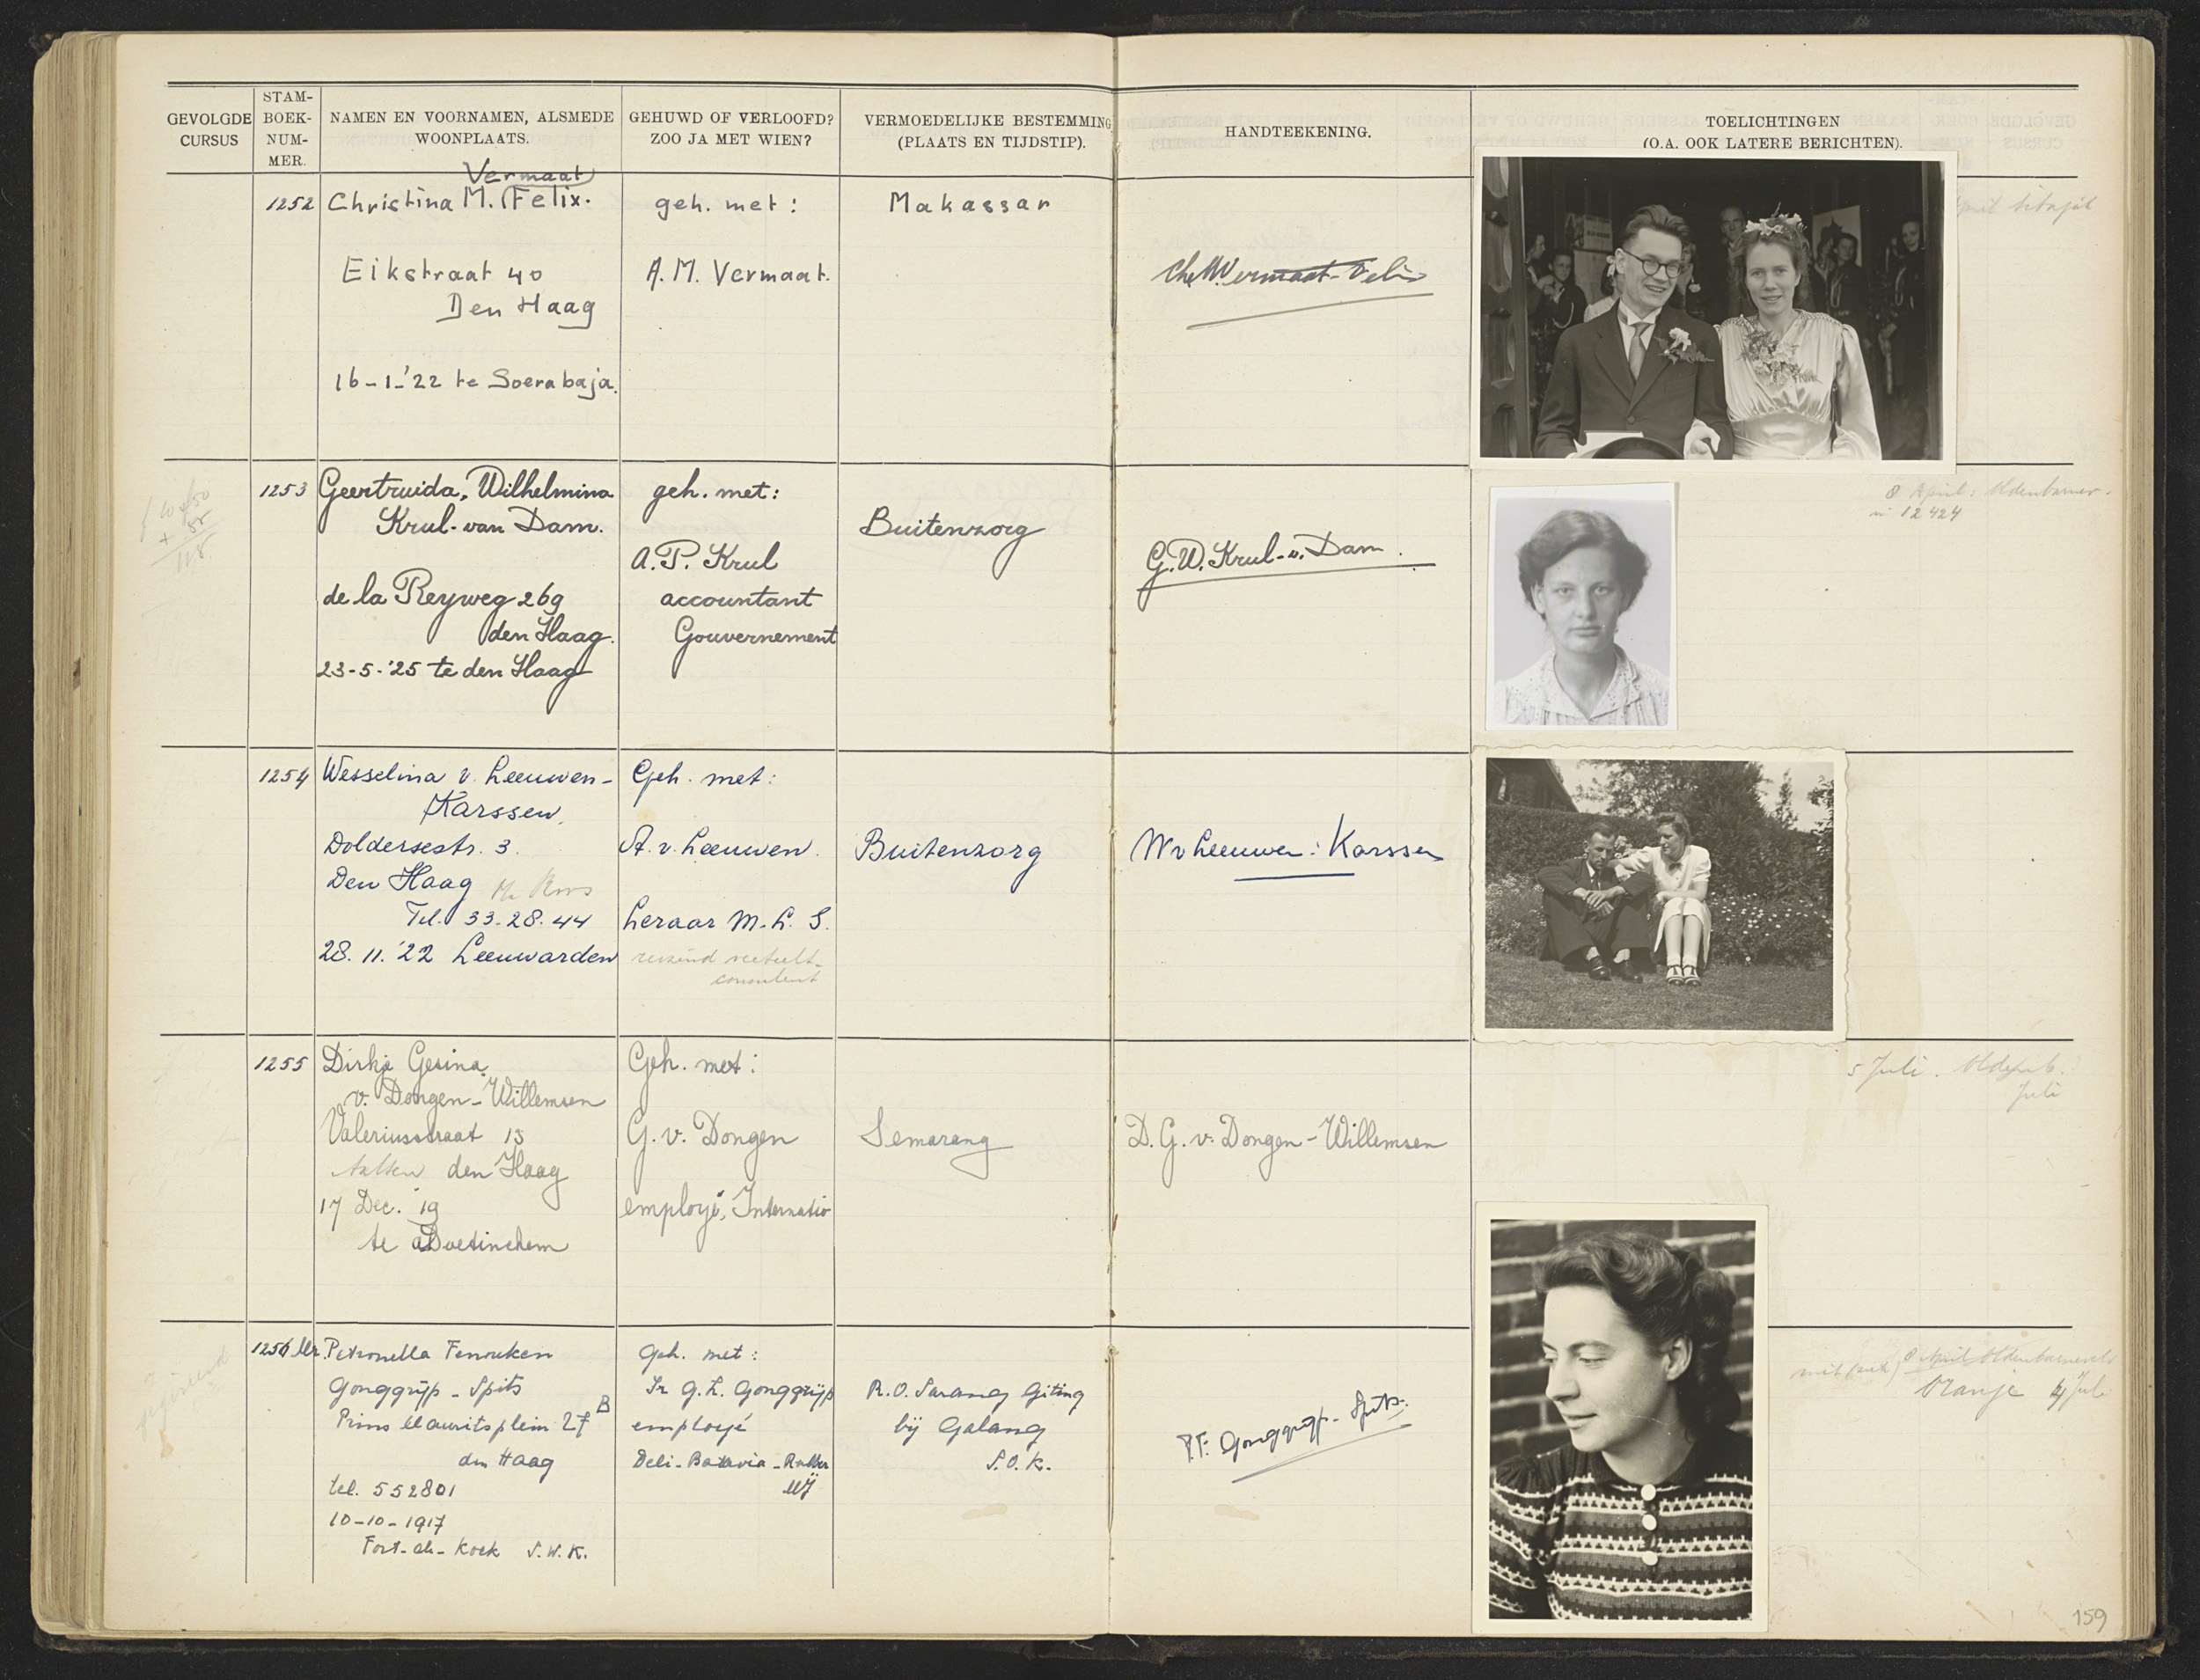 GEVOLGDE CURSUS
STAM-BOEK-NUM-MER.
NAMEN EN VOORNAMEN, ALSMEDE WOONPLAATS.
GEHUWD OF VERLOOFD? ZOO JA MET WIEN?
VERMOEDELIJKE BESTEMMING (PLAATS EN TIJDSTIP).
HANDTEEKENING.
TOELICHTINGEN
(O.A. OOK LATERE BERICHTEN).
1252
Vermaat
Christina M. Felix.
Eikstraat 40
Den Haag
16-1-'22 te Soerabaja.
geh. met:
A.M. Vermaat.
Makassar
Ch.M. Vermaat-Felix
April
1253
Geertruida, Wilhelmina
Krul-van Dam.
de la Reyweg 269
den Haag.
23-5-'25 te den Haag
geh. met:
A.P. Krul
accountant
Gouvernement
Buitenzorg
G.W. Krul-v. Dam.
8 April: Oldenbarnev.
12424
1254
Wesselina v. Leeuwen-
Karssen.
Doldersestr. 3.
Den Haag
Tel. 33.28.44
28.11.'22 Leeuwarden
Geh. met:
A. v. Leeuwen.
Leraar M.L.S.
reizend veeteelt-
consulent
Buitenzorg
W v Leeuwen-Karssen
1255
Dirkje Gesina
v. Dongen-Willemsen
Valeriusstraat 13
Aalten den Haag
17 Dec. '19
te Doetinchem
Geh. met:
G. v. Dongen
employé, Internatio
Semarang
D.G. v. Dongen-Willemsen
5 Juli.
Juli
1256
Mr. Petronella Fenouken
Gonggrijp-Spits
Prins Mauritsplein 27 B
den Haag
tel. 552801
10-10-1917
Fort-de-Kock S.W.K.
Geh. met:
Ir G.L. Gonggrijp
employé
Deli-Batavia-Rubber
Mij
R.O. Sarang Giting
bij Galang
S.O.K.
P.F. Gonggrijp-Spits.
8 April Oldenbarnevelt
Oranje 4 Juli
159